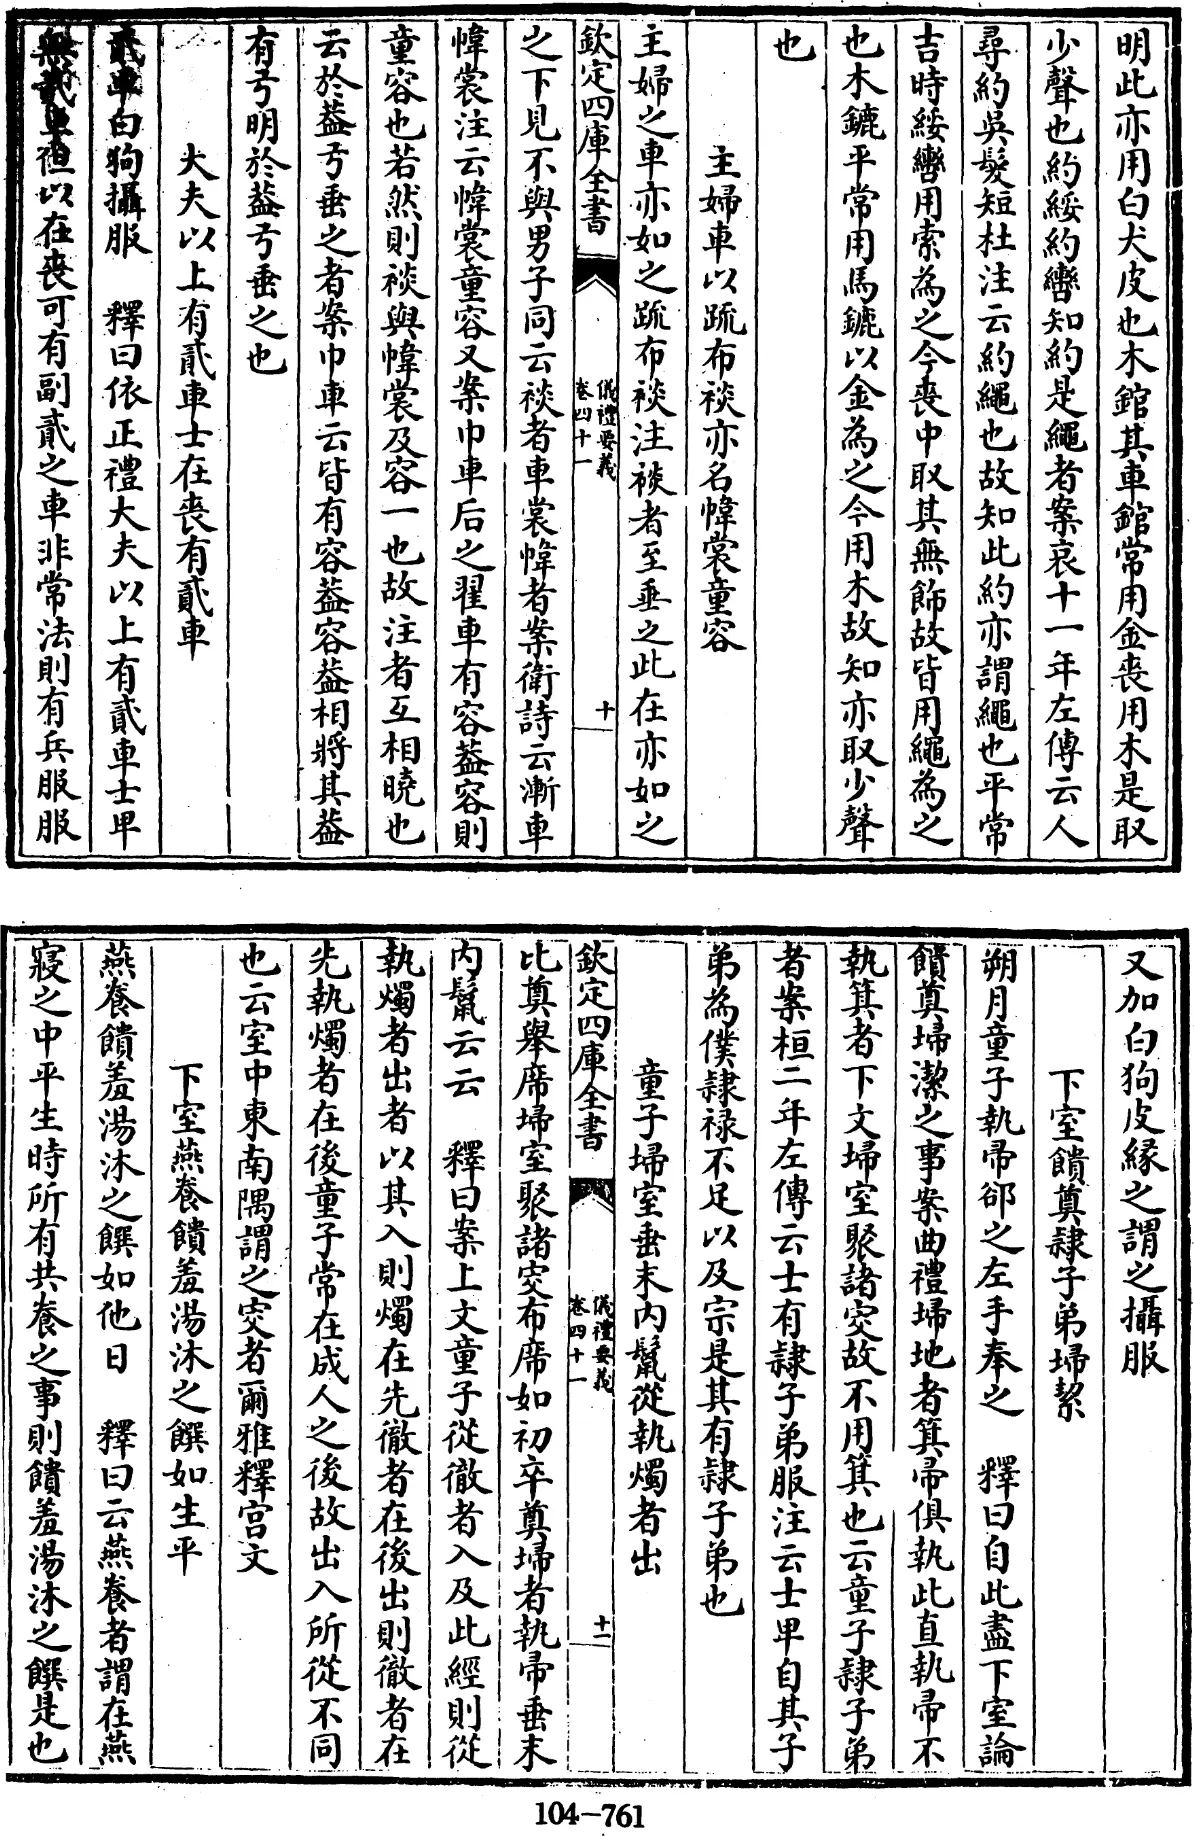 明此亦用白犬皮也木錧其車錧常用金喪用木是取
少聲也約綏約轡知約是繩者案哀十一年左傳云人
尋約吳髮短杜注云約繩也故知此約亦謂繩也平常
吉時綏轡用索為之今喪中取其無飾故皆用繩為之
也木鑣平常用馬鑣以金為之今用木故知亦取少聲
也
主婦車以疏布裧亦名幃裳童容
主婦之車亦如之疏布裧注裧者至垂之此在亦如之
欽定四庫全書
儀禮要義
卷四十一
十
之下見不與男子同云裧者車裳幃者案衛詩云漸車
幃裳注云幃裳童容又案巾車后之翟車有容葢容則
童容也若然則裧與幃裳及容一也故注者互相曉也
云於葢弓垂之者案巾車云皆有容葢容葢相將其葢
有弓明於葢弓垂之也
大夫以上有貳車士在喪有貳車
貳車白狗攝服 釋曰依正禮大夫以上有貳車士卑
無貳車但以在喪可有副貳之車非常法則有兵服服
又加白狗皮縁之謂之攝服
下室饋奠隸子弟埽絜
朔月童子執帚郤之左手奉之 釋曰自此盡下室論
饋奠埽潔之事案曲禮埽地者箕帚俱執此直執帚不
執箕者下文埽室聚諸窔故不用箕也云童子隸子弟
者案桓二年左傳云士有隸子弟服注云士卑自其子
弟為僕隸祿不足以及宗是其有隸子弟也
童子埽室垂末内鬣從執燭者出
欽定四庫全書
儀禮要義
卷四十一
十一
比奠舉席埽室聚諸窔布席如初卒奠埽者執帚垂末
内鬣云云 釋曰案上文童子從徹者入及此經則從
執燭者出者以其入則燭在先徹者在後出則徹者在
先執燭者在後童子常在成人之後故出入所從不同
也云室中東南隅謂之窔者爾雅釋宫文
下室燕養饋羞湯沐之饌如生平
燕養饋羞湯沐之饌如他日 釋曰云燕養者謂在燕
寢之中平生時所有共養之事則饋羞湯沐之饌是也
104-761